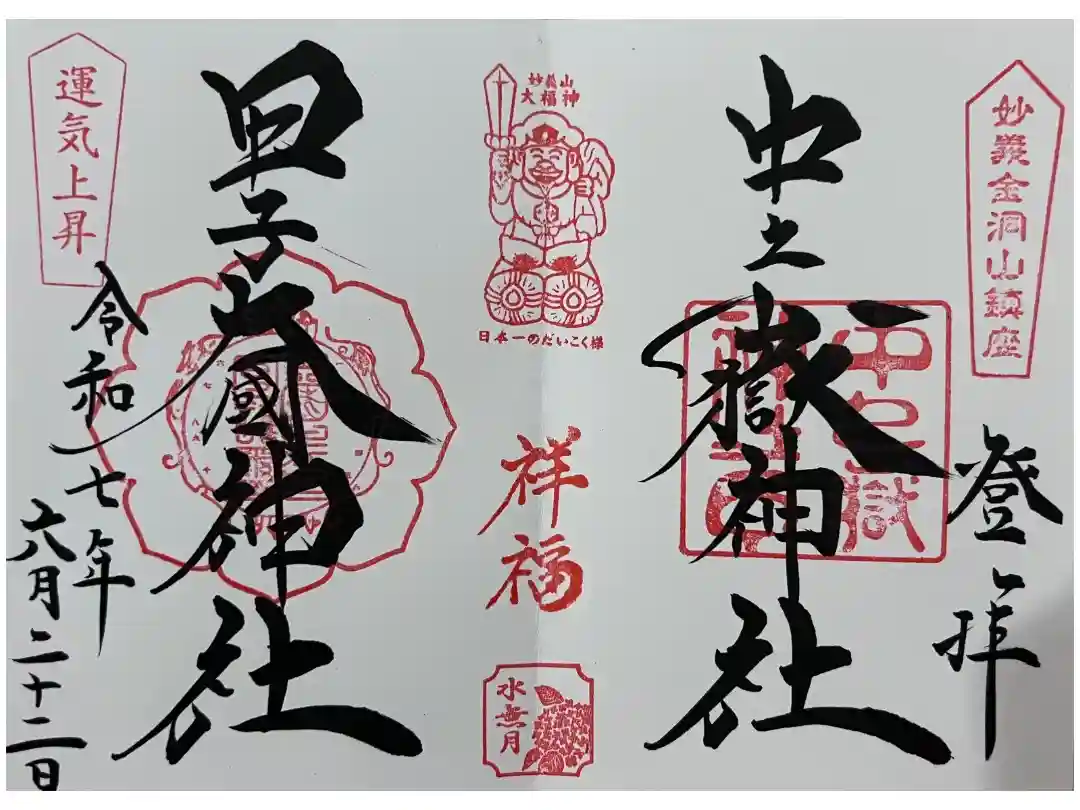 妙義金洞山鎮座
登拝
中之嶽神社
中之嶽
神社
妙義山
大福神
日本一のだいこく様
祥福
水無月
甲子大國神社
運気上昇
令和七年
六月二十二日